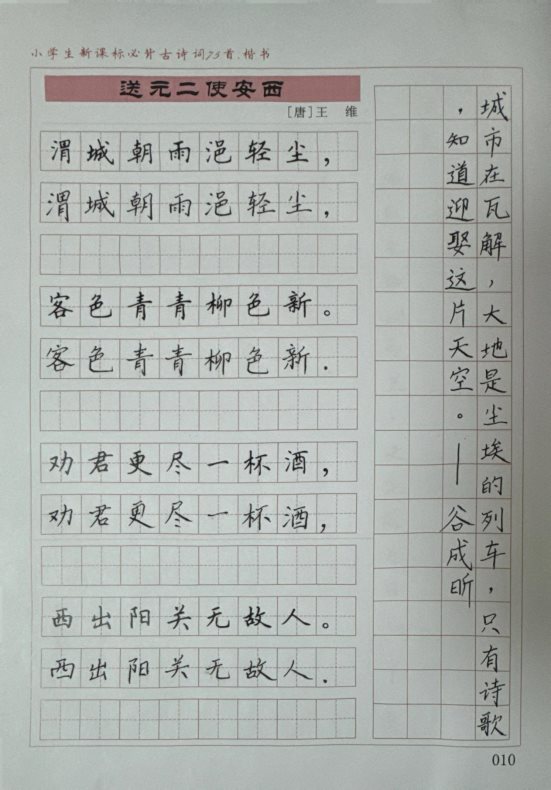 小学生新课标必背古诗词75首.楷书
送元二使安西
[唐]王 维
渭城朝雨浥轻尘，
渭城朝雨浥轻尘，
客色青青柳色新。
客色青青柳色新.
劝君更尽一杯酒，
劝君更尽一杯酒，
西出阳关无故人。
西出阳关无故人.
城市在瓦解，大地是尘埃的列车，只有诗歌
，知道迎娶这片天空。—谷成昕
010